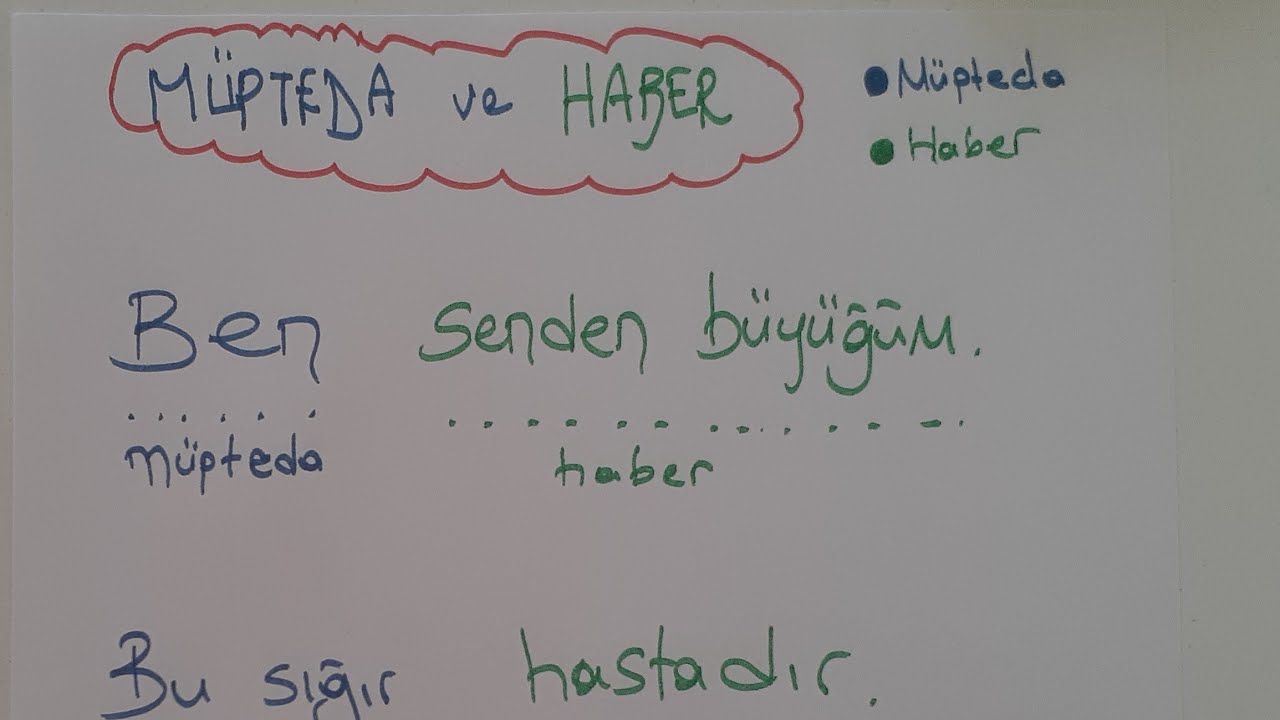 MÜPTEDA ve HABER
• Müpteda
• Haber
Ben senden büyüğüm.
müpteda haber
Bu sığır hastadır.